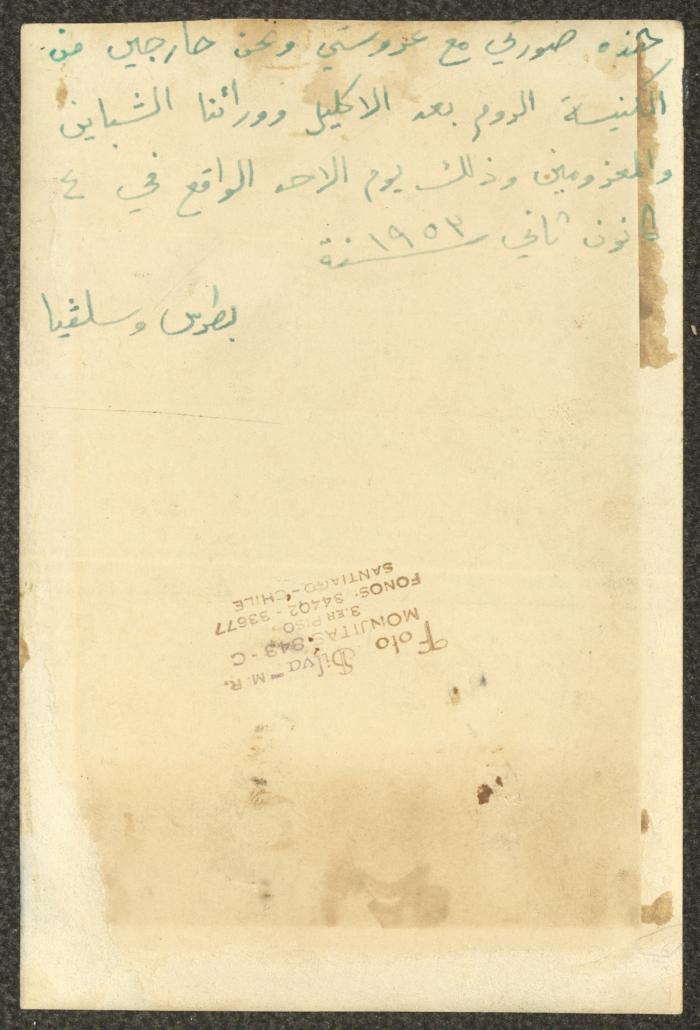 هذه صورتي مع عروستي ونحن خارجين من
الكنيسة الروم بعد الاكليل وورائنا الشباين
والمعزومين وذلك يوم الاحد الواقع في ٤
كانون ثاني سنة ١٩٥٣
بطرس وسلڤيا
Foto Silva - M. R.
MONJITAS 843 - C
3.ER PISO
FONOS: 34402 - 33677
SANTIAGO - CHILE